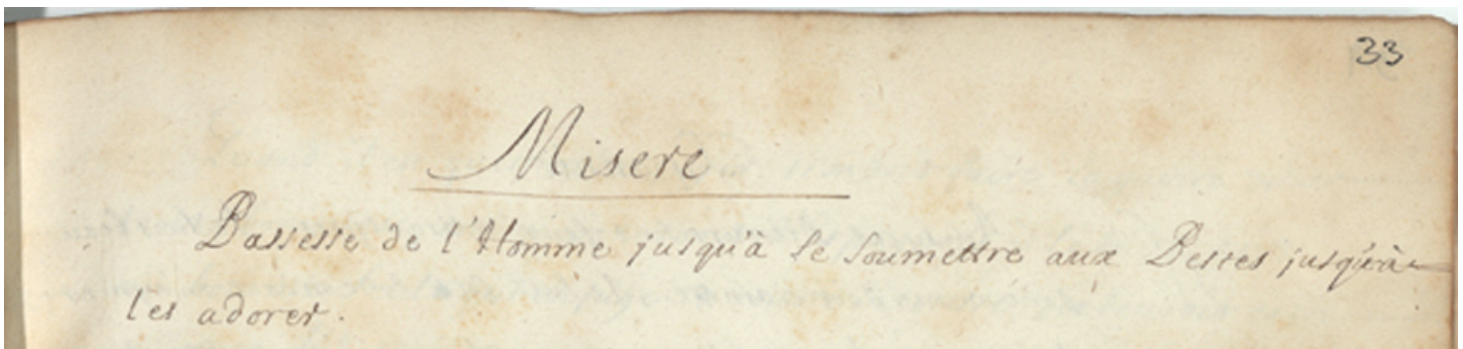 33
Misere
Bassesse de l'Homme jusqu'à se soumettre aux Bestes jusqu'à
les adorer.